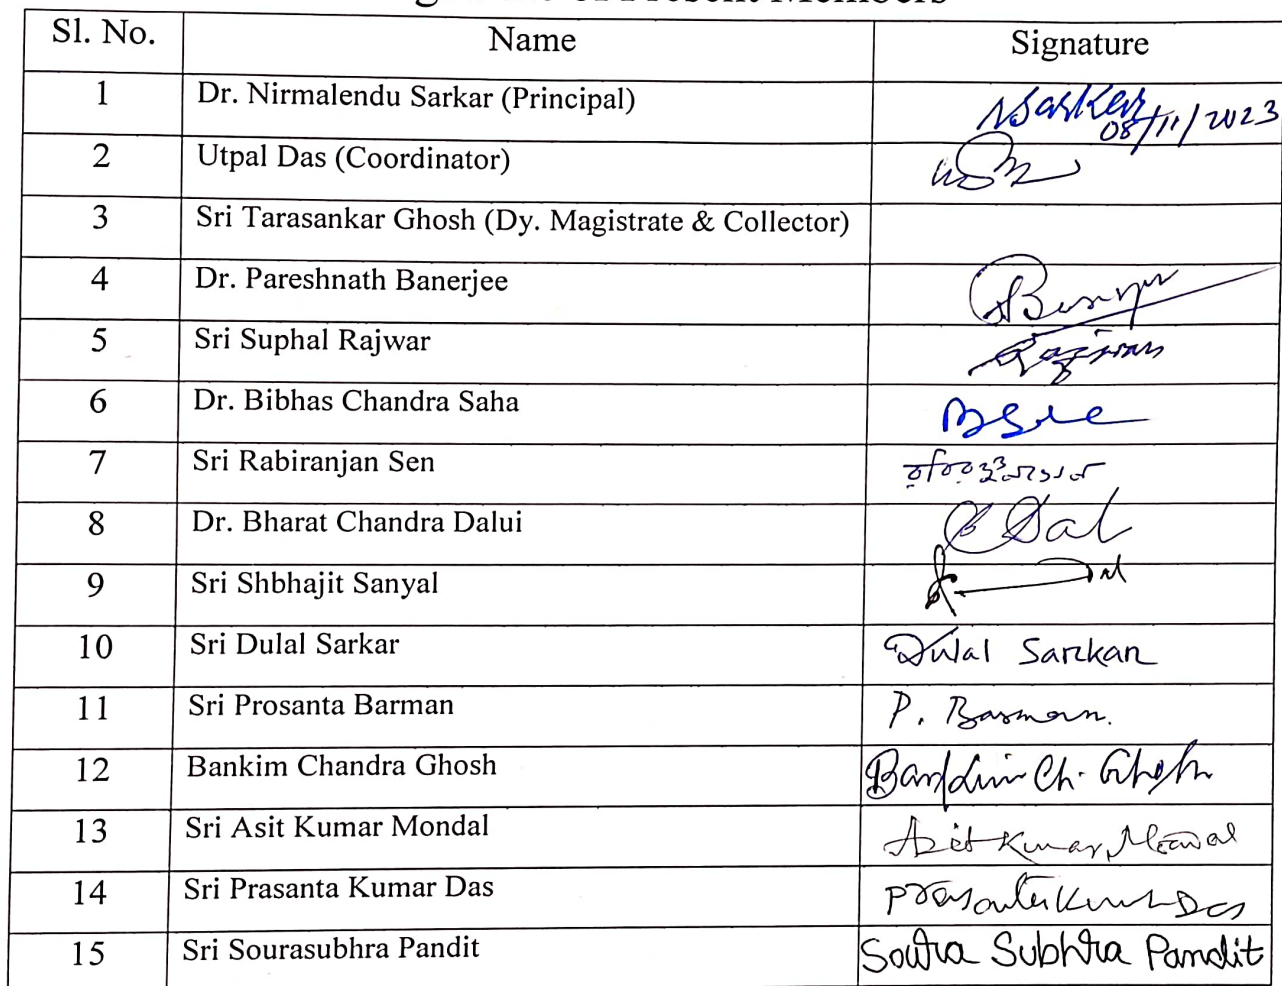 of Present Members
Sl. No. Name Signature
1 Dr. Nirmalendu Sarkar (Principal) NSarkar 08/11/2023
2 Utpal Das (Coordinator)
3 Sri Tarasankar Ghosh (Dy. Magistrate & Collector)
4 Dr. Pareshnath Banerjee
5 Sri Suphal Rajwar
6 Dr. Bibhas Chandra Saha
7 Sri Rabiranjan Sen
8 Dr. Bharat Chandra Dalui
9 Sri Shbhajit Sanyal
10 Sri Dulal Sarkar Dulal Sarkar
11 Sri Prosanta Barman P. Barman.
12 Bankim Chandra Ghosh Bankim Ch. Ghosh
13 Sri Asit Kumar Mondal Asit Kumar Mondal
14 Sri Prasanta Kumar Das Prasanta Kumar Das
15 Sri Sourasubhra Pandit Soura Subhra Pandit